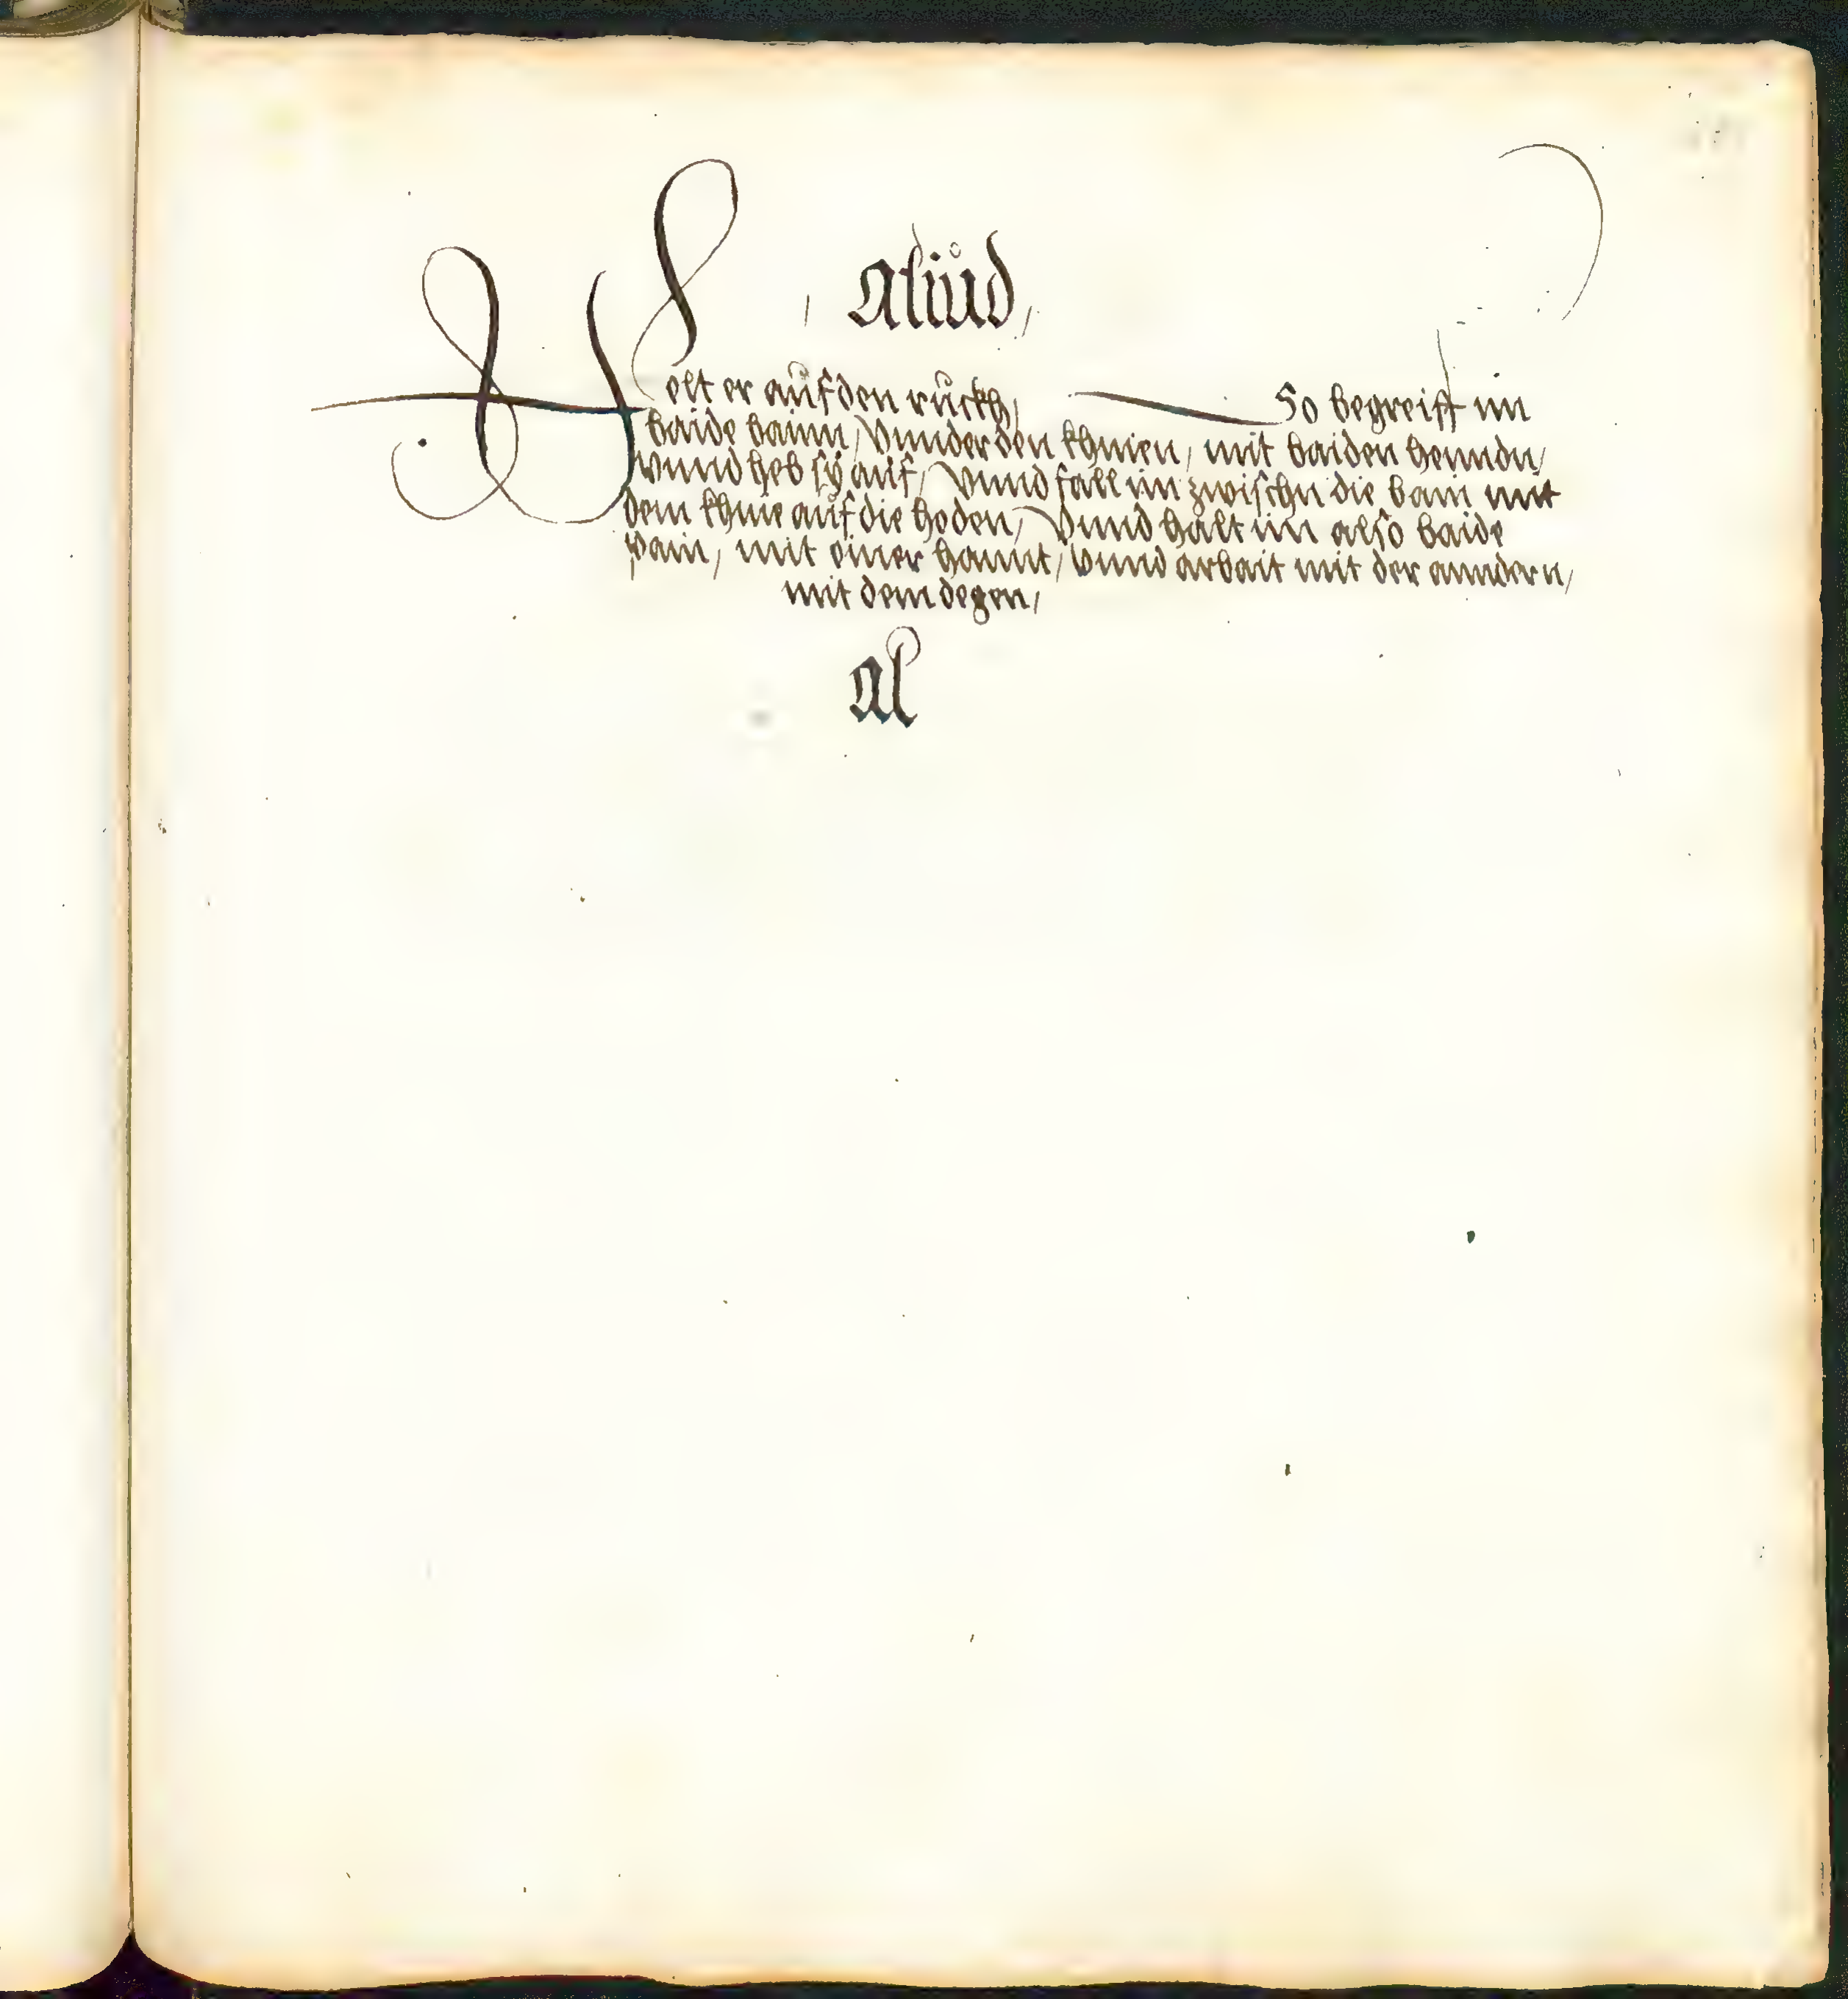 Aliůd,
Velt er aůf den růckh, So begreiff im
baide bainn, Vnnder den khnien, mit baiden hennden,
vnnd heb sÿ auf, Vnnd fall im zwischn die bain mit
dem khnie aůf die hoden, Vnnd halt im also baide
pain, mit einer hannt, vnnd arbait mit der anndern,
mit dem degen,
Al